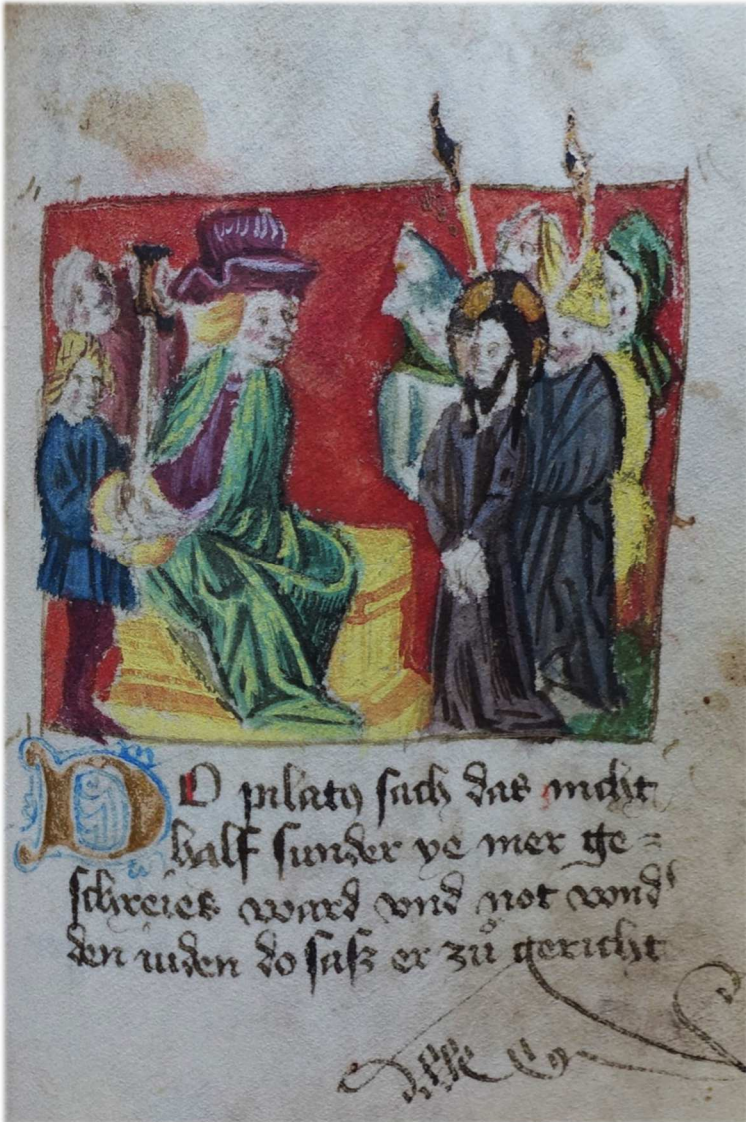 DO pilatꝯ sach das nicht
half sunder ye mer ge=
schreies ward vnd not wnd'
den iuden do saſz er zů gericht